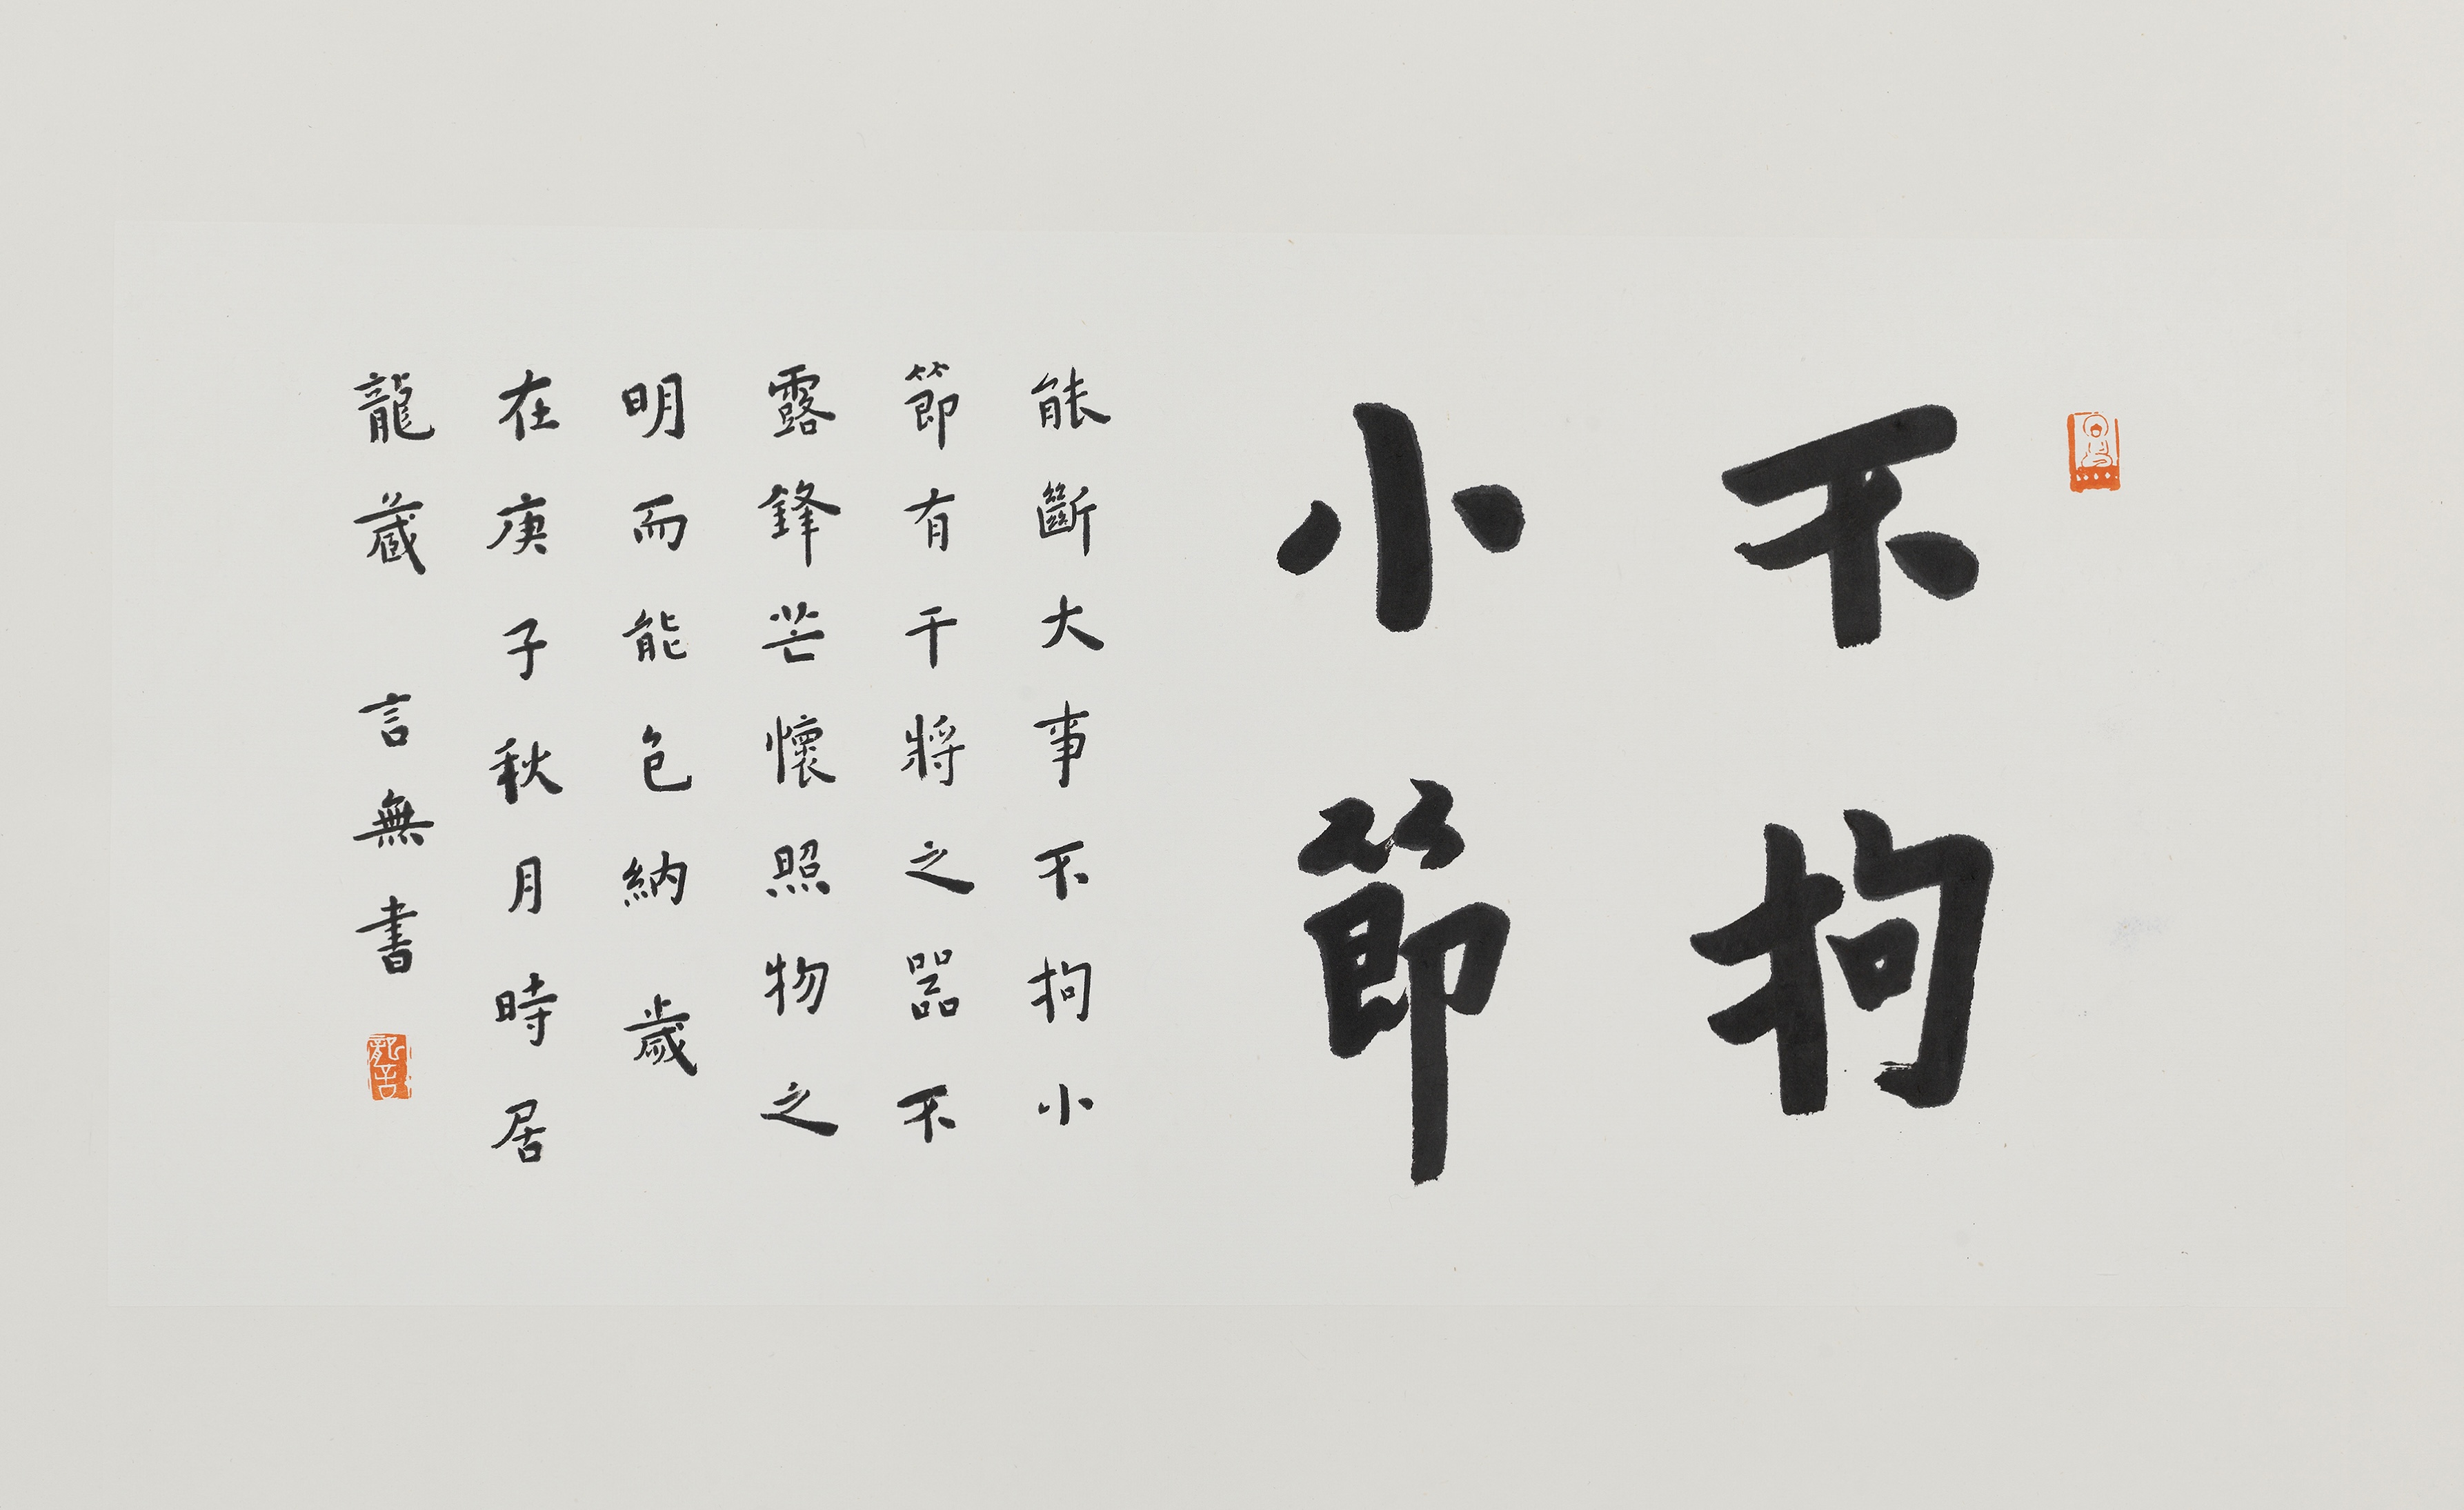 不拘
小節
能斷大事不拘小
節有干將之器不
露鋒芒懷照物之
明而能包納 歲
在庚子秋月時居
龍藏 言無書